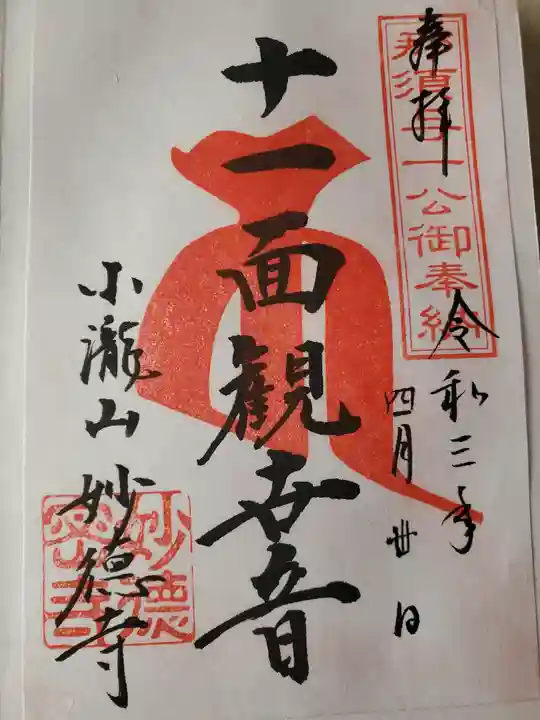 奉拝
那須与一公御奉納
令和三年
四月廿日
十一面観世音
小瀧山妙徳寺
妙徳